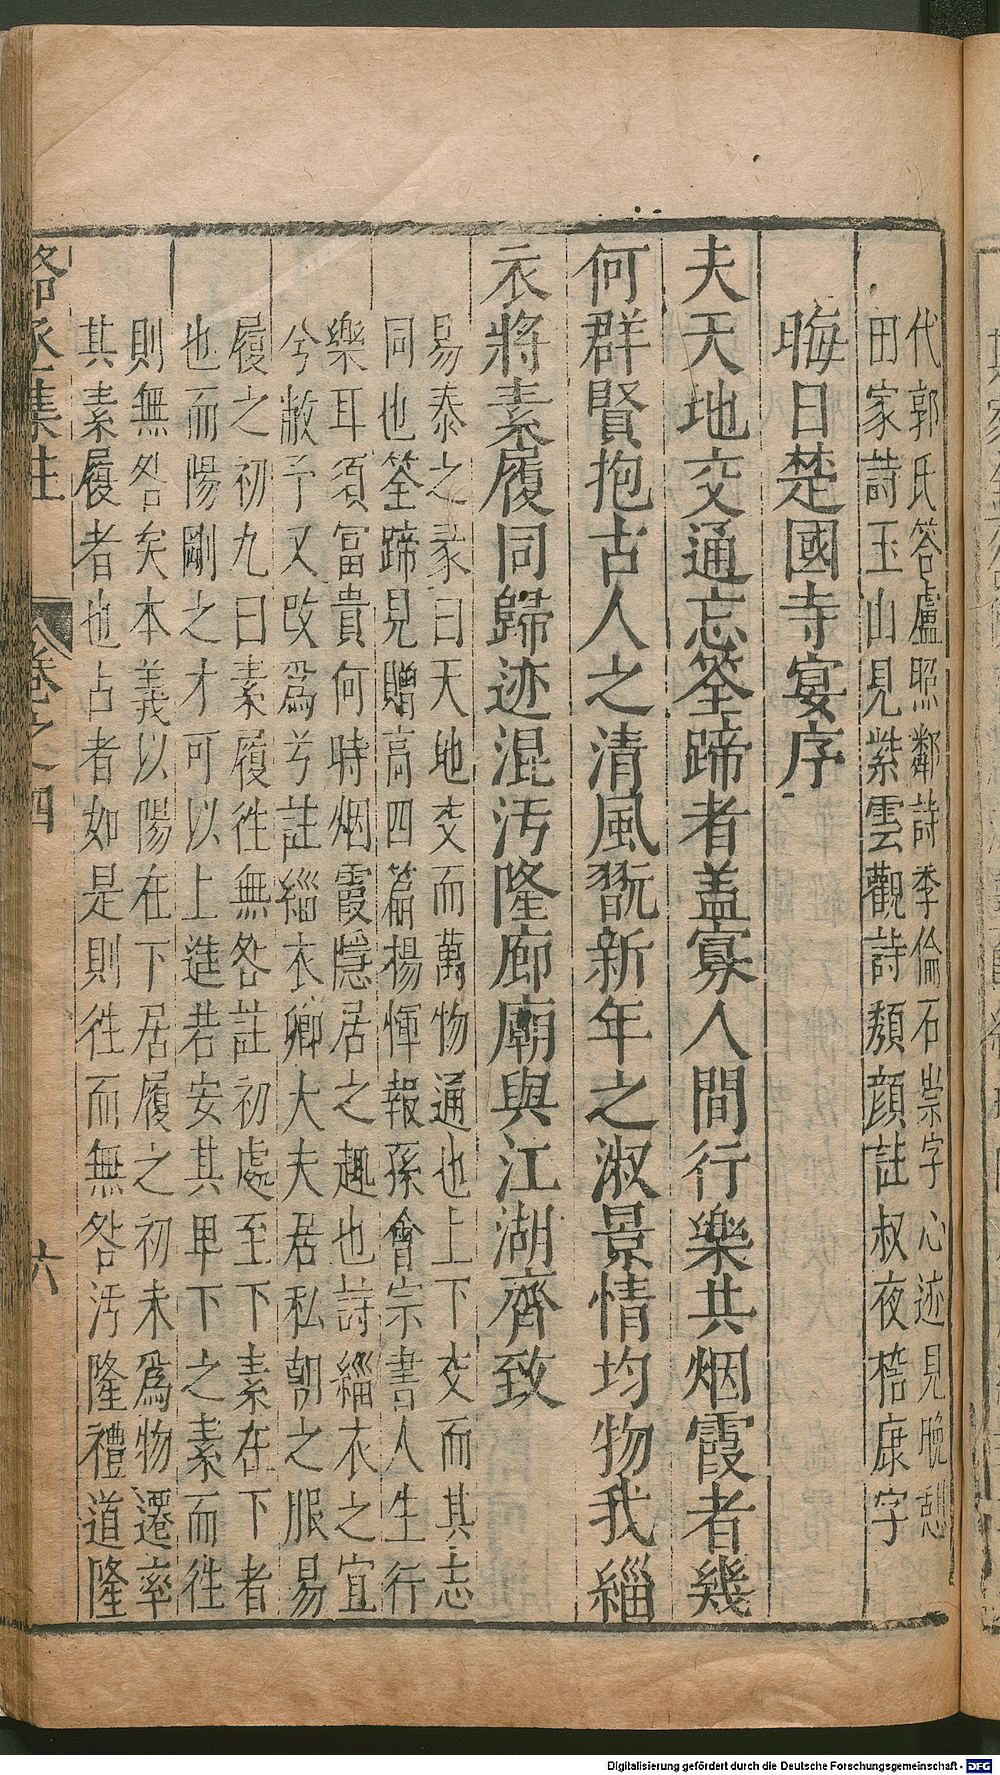 代郭氏答盧照鄰詩季倫石崇字心迹見晚憇
田家詩玉山見紫雲觀詩頺顔註叔夜嵇康字
晦日楚國寺宴序
夫天地交通忘筌蹄者盖寡人間行樂共烟霞者幾
何群賢抱古人之清風翫新年之淑景情均物我緇
衣將素履同歸迹混汚隆廊廟與江湖齊致
易泰之彖曰天地交而萬物通也上下交而其志
同也筌蹄見贈高四篇楊惲報孫會宗書人生行
樂耳須富貴何時烟霞隱居之趣也詩緇衣之宜
兮敝予又改爲兮註緇衣卿大夫居私朝之服易
履之初九曰素履徃無咎註初處至下素在下者
也而陽剛之才可以上進若安其卑下之素而徃
則無咎矣本義以陽在下居履之初未爲物遷率
其素履者也占者如是則徃而無咎汚隆禮道隆
駱丞集註 卷之四 六
Digitalisierung gefördert durch die Deutsche Forschungsgemeinschaft - DFG